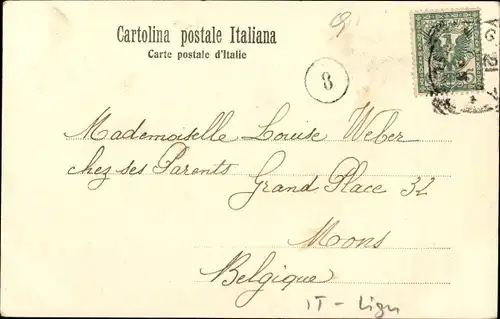 Cartolina postale Italiana
Carte postale d'Italie
8
Mademoiselle Louise Weber
chez ses Parents Grand Place 32
Mons
Belgique
IT - Ligu